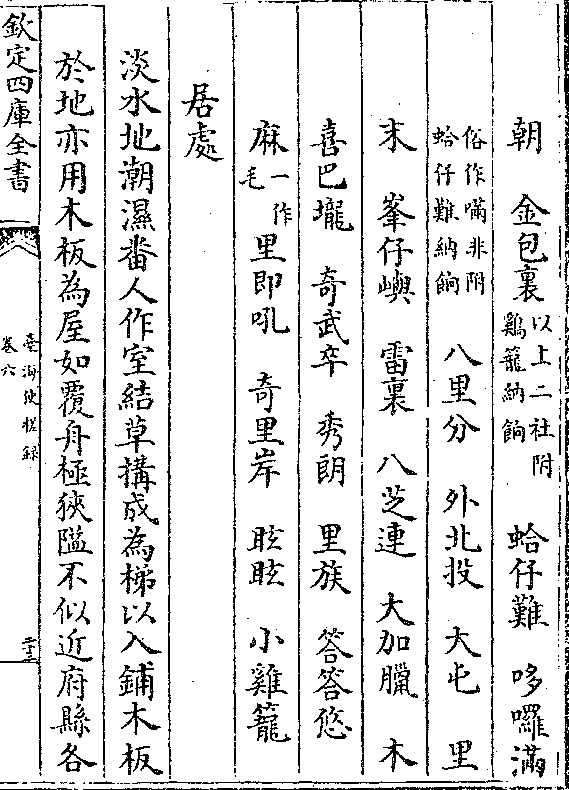 朝　金包裏以上二社附雞籠納餉　蛤仔難　哆囉滿
俗作嘓非附蛤仔難納餉　八里分　外北投　大屯　里
末　峯仔嶼　雷裏　八芝連　大加臘　木
喜巴壠　奇武卒　秀朗　里族　答答悠
麻一作毛里即吼　奇里岸　眩眩　小雞籠
居處
淡水地潮濕番人作室結草搆成為梯以入鋪木板
於地亦用木板為屋如覆舟極狹隘不似近府縣各
欽定四庫全書
臺海使槎錄
卷六
二十三